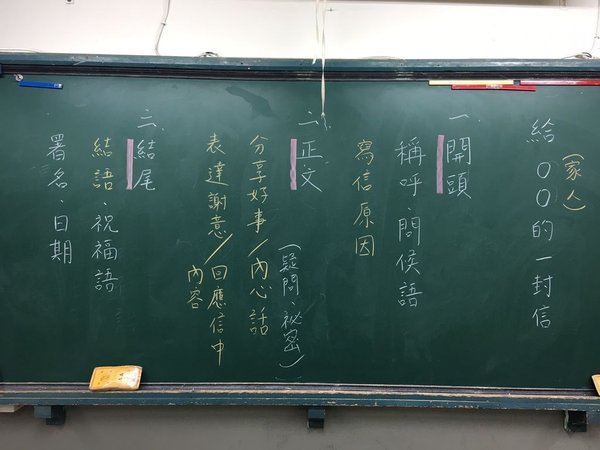 給○○的一封信
(家人)
一、開頭
稱呼、問候語
寫信原因
二、正文
(疑問、祕密/)
分享好事/內心話
表達謝意/回應信中
內容
三、結尾
結語、祝福語
署名、日期